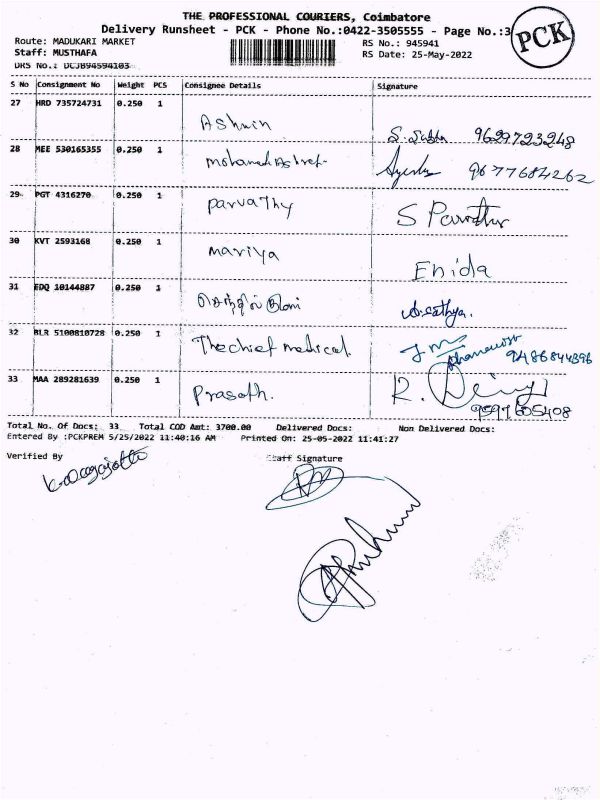 THE PROFESSIONAL COURIERS, Coimbatore
Delivery Runsheet - PCK - Phone No.:0422-3505555 - Page No.:3
PCK
Route: MADUKARI MARKET
RS No.: 945941
Staff: MUSTHAFA
RS Date: 25-May-2022
DRS No.: DCJB94594103
S No Consignment No Weight PCS Consignee Details Signature
27 HRD 735724731 0.250 1
Ashwin S. Subha 9629723248
28 MEE 530165355 0.250 1
Mohamed Ashref 9677684262
29 PGT 4316270 0.250 1
Parvathy S
30 KVT 2593168 0.250 1
Mariya Enida
31 EDQ 10144887 0.250 1
32 BLR 5100810728 0.250 1
The chief medical 9486844396
33 MAA 289281639 0.250 1
Prasath. R.
9597605408
Total No. Of Docs: 33 Total COD Amt: 3700.00 Delivered Docs: Non Delivered Docs:
Entered By :PCKPREM 5/25/2022 11:40:16 AM Printed On: 25-05-2022 11:41:27
Verified By Staff Signature